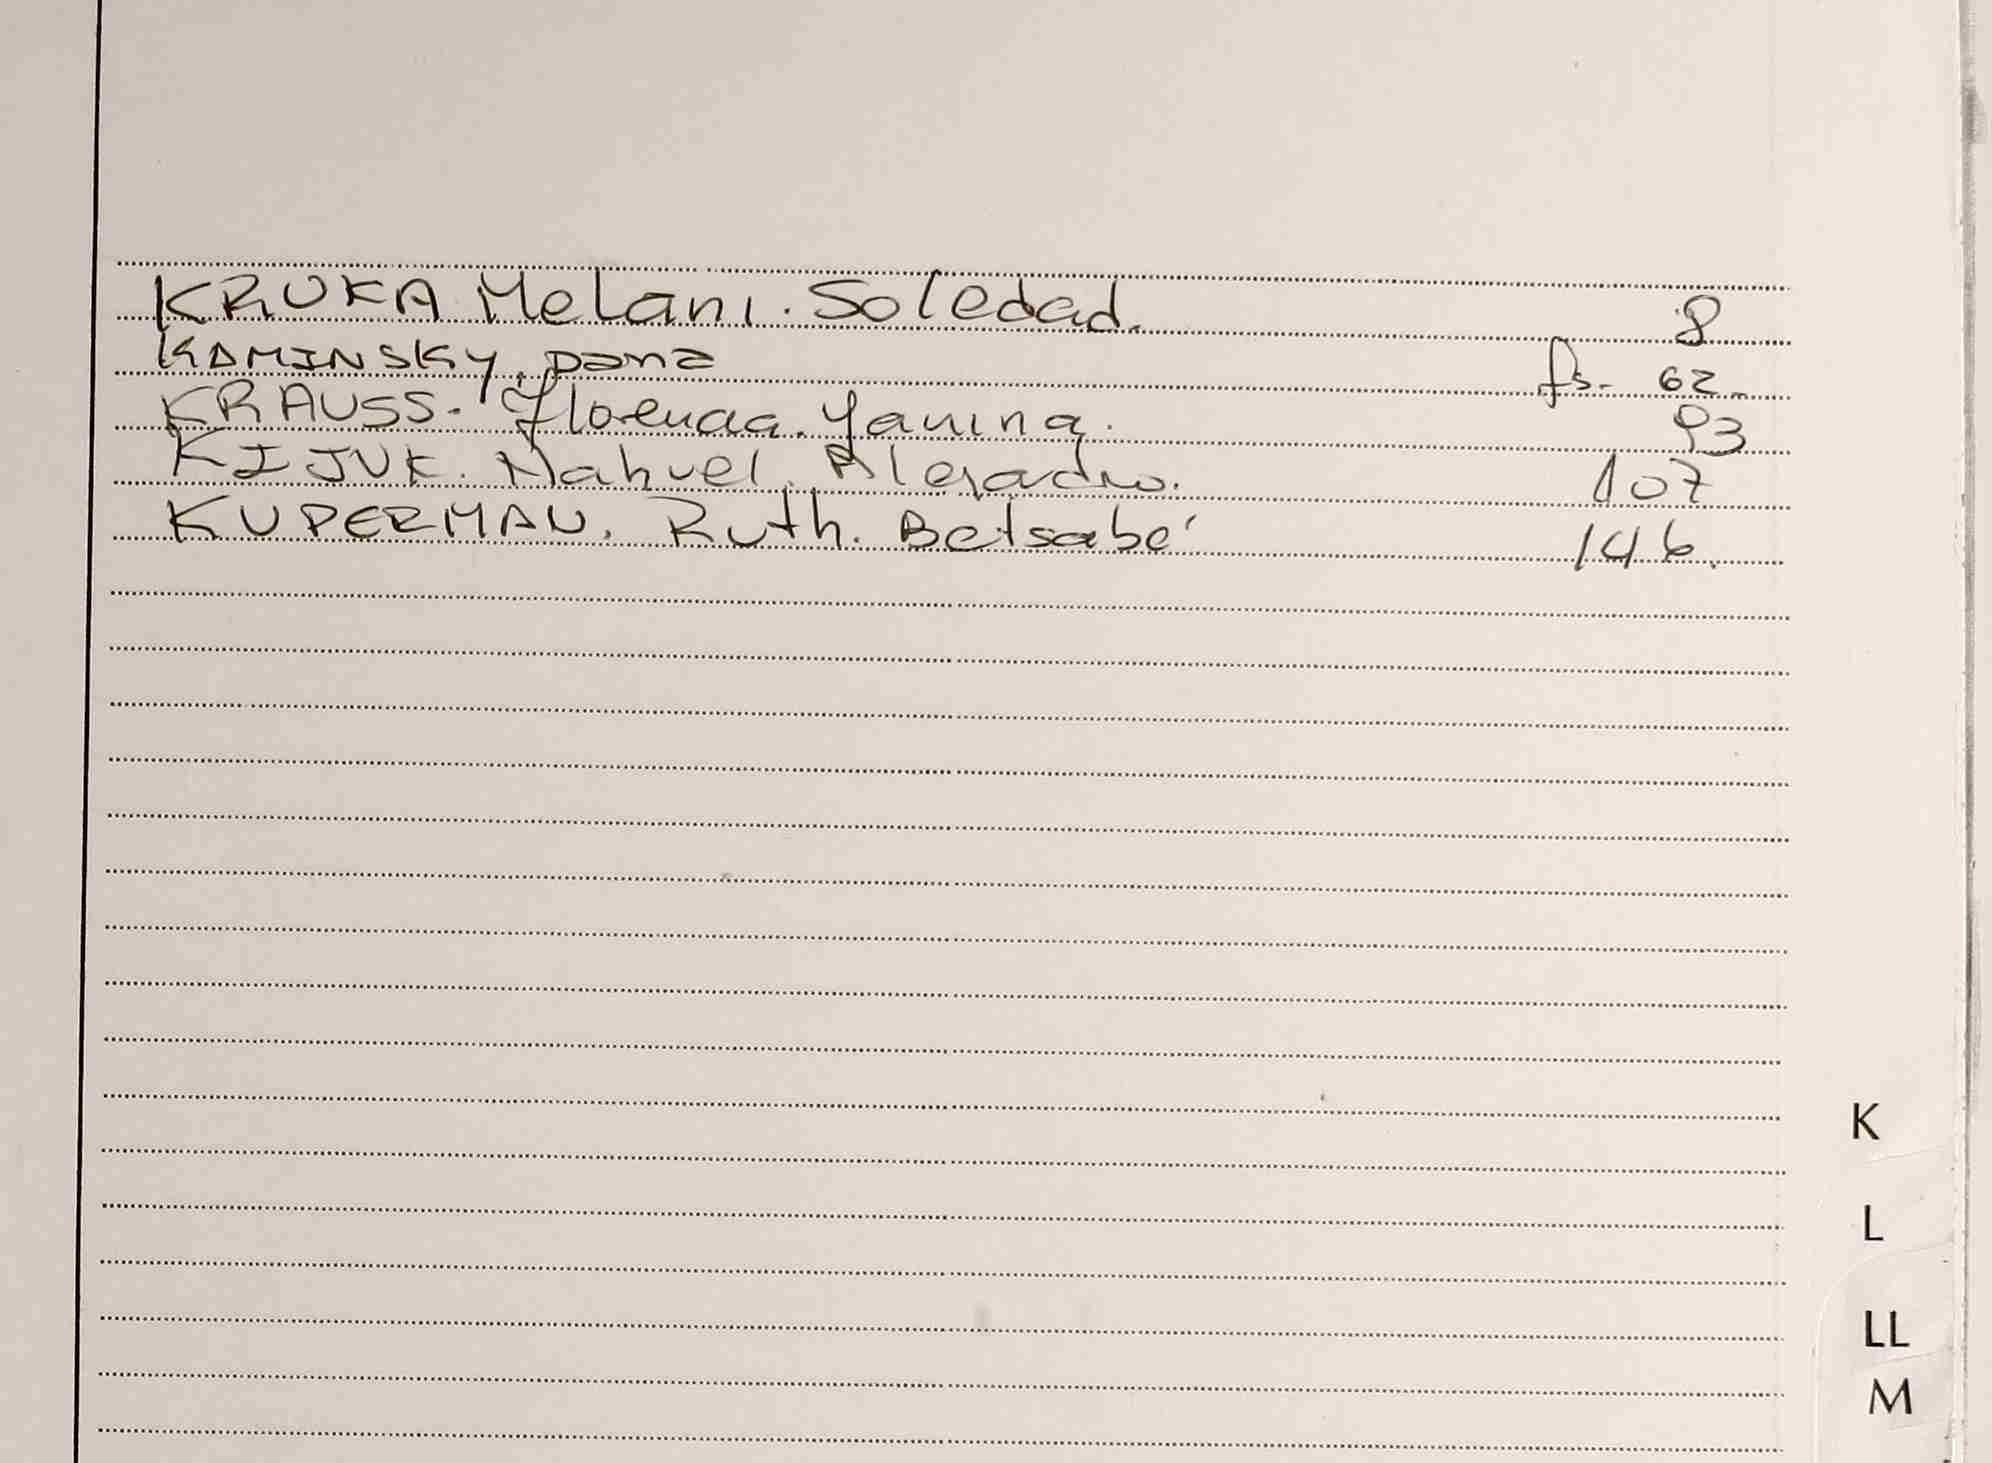 KRUKA Melani. Soledad. 8
KAMINSKY, Dana fs. 62
KRAUSS. Florencia. Yanina. 93
KIJUK. Nahuel. Alejandro. 107
KUPERMAN. Ruth. Betsabé 146.
K
L
LL
M